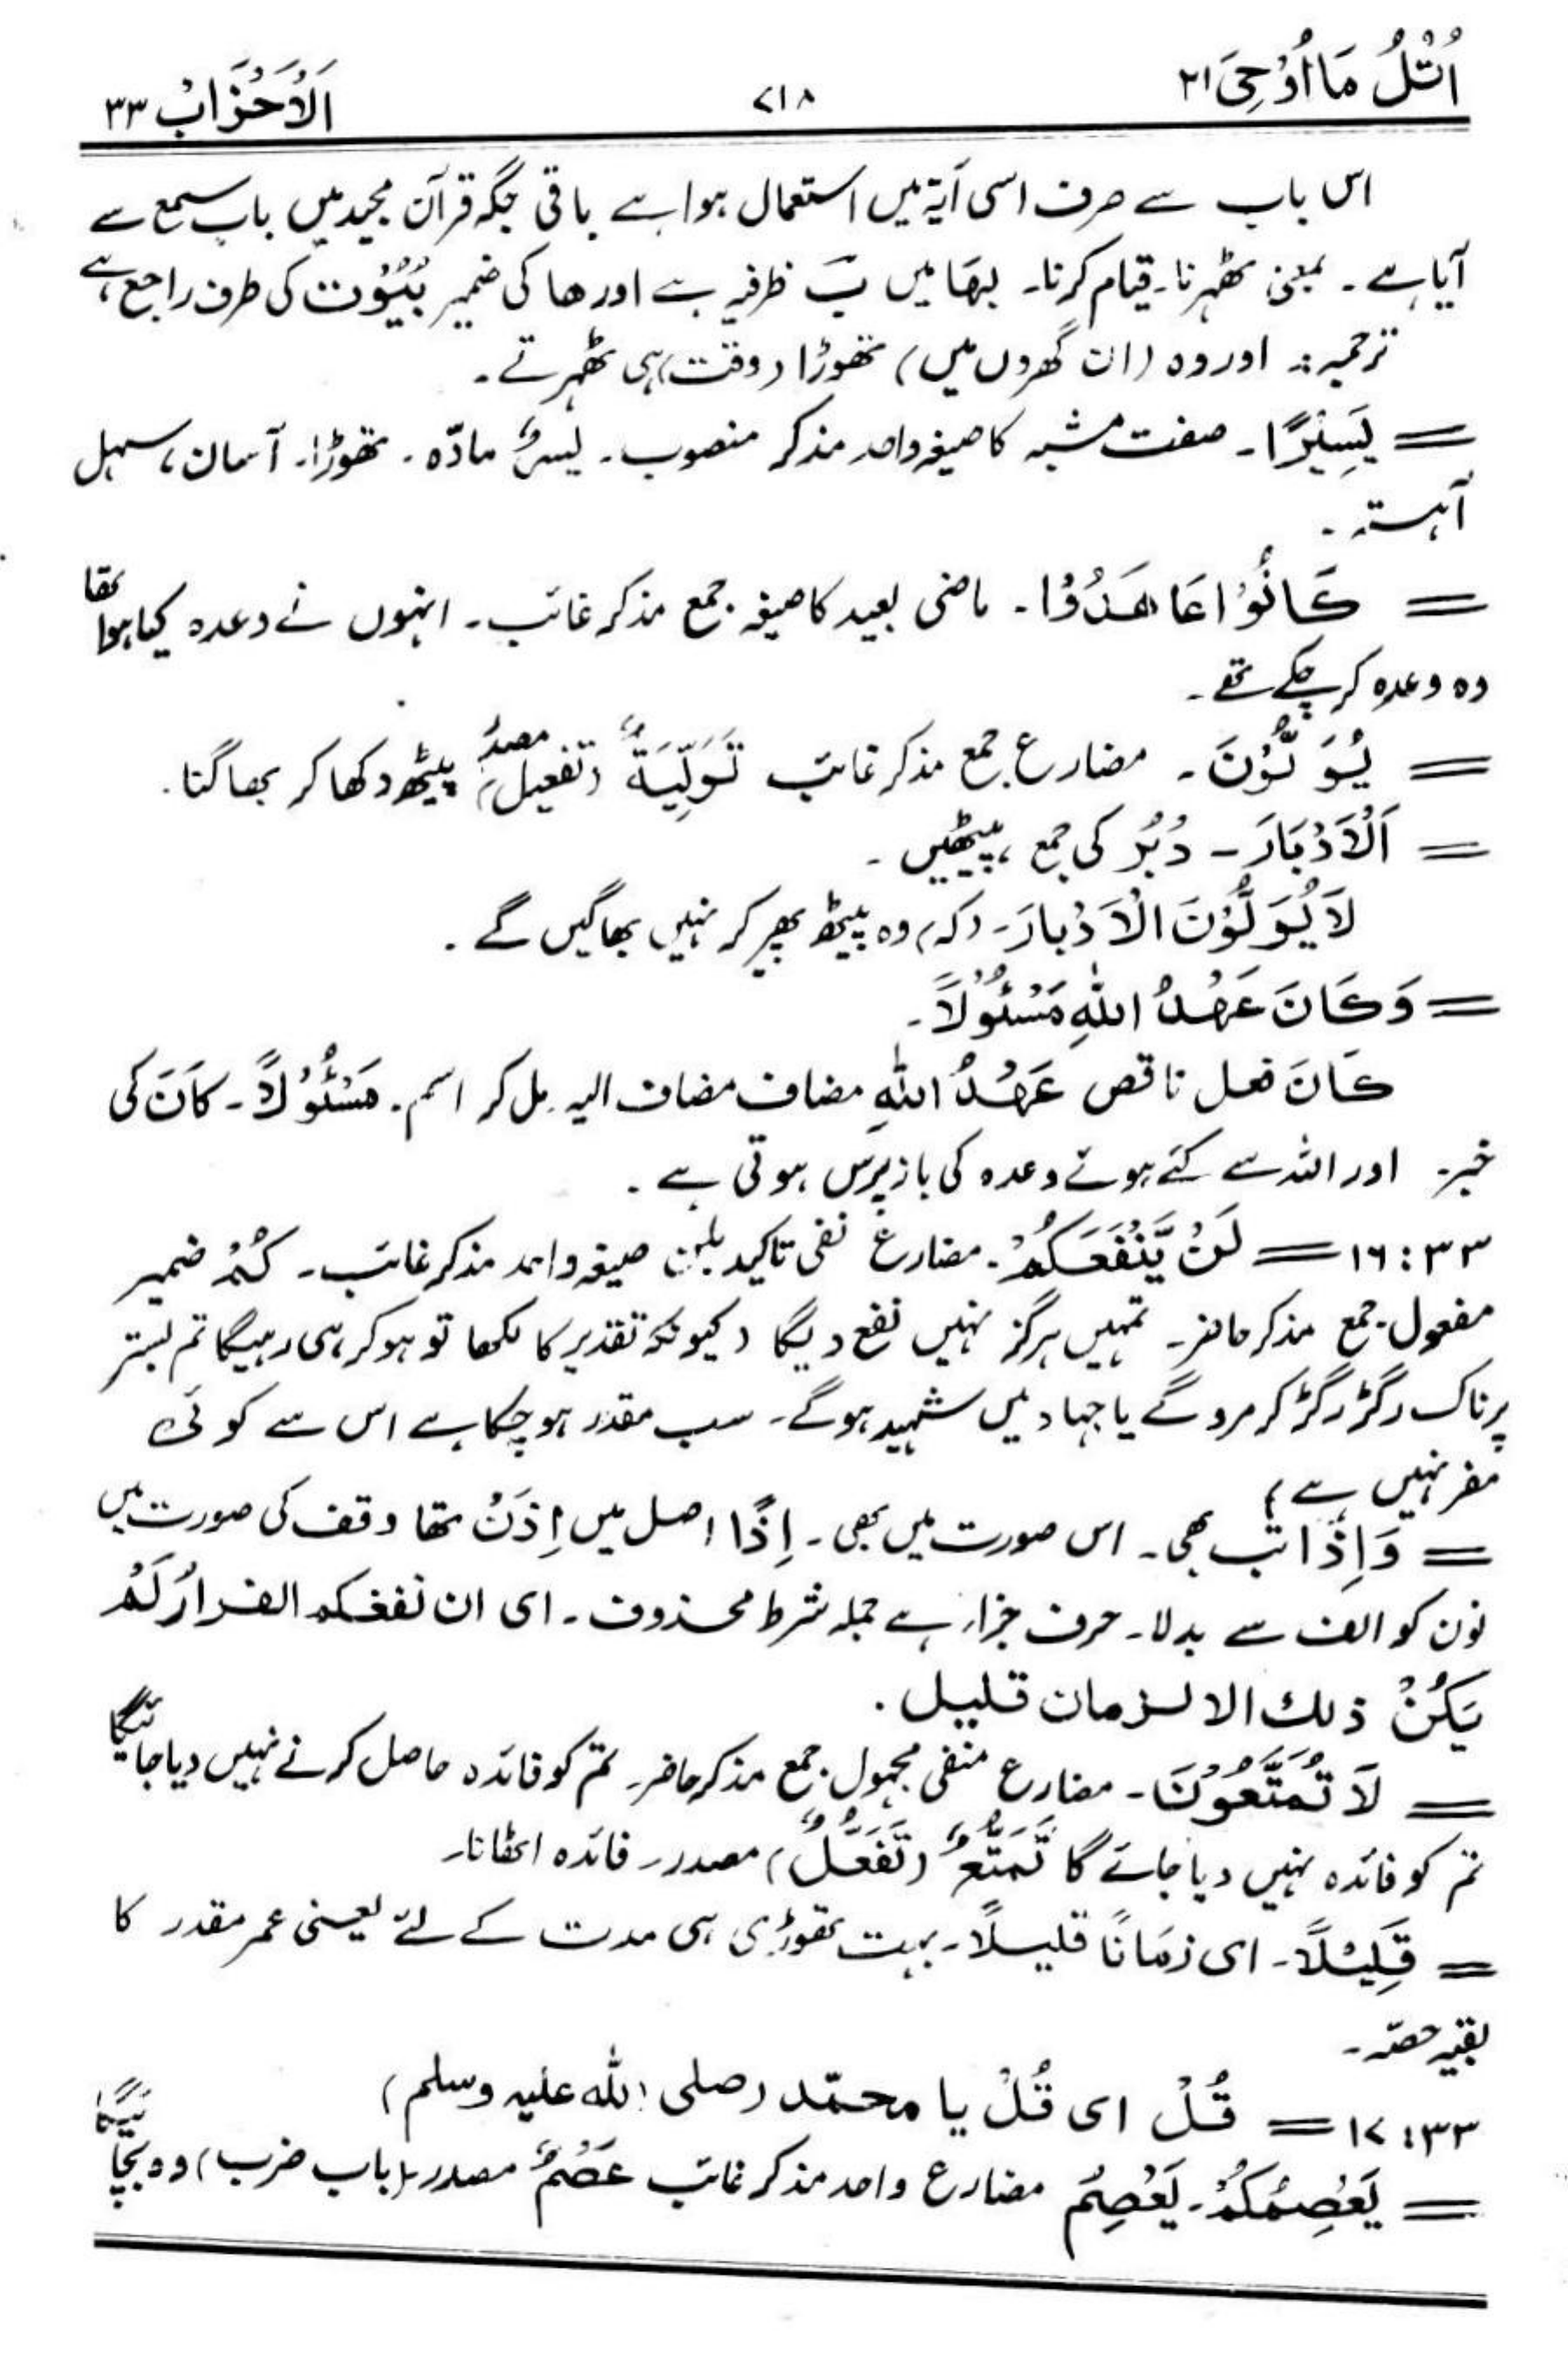 اُتْلُ مَا اُوْحِیَ ۲۱ ۷۱۸ اَلْاَحْزَابْ ۳۳
اس باب سے صرف اسی آیۃ میں استعمال ہوا ہے باقی جگہ قرآن مجید میں باب سمع سے
آیا ہے ۔ بمعنی ٹھہرنا۔ قیام کرنا۔ بِھَا میں بَ ظرفیہ ہے اور ھا کی ضمیر بُیُوْت کی طرف راجع ہے
ترجمہ:۔ اور وہ (ان گھروں میں) تھوڑا (وقت) ہی ٹھہرتے ۔
= یَسِیْرًا۔ صفت مشبہ کا صیغہ واحد مذکر منصوب۔ یسرٌ مادّہ ۔ تھوڑا۔ آسان، سہل
آہستہ ۔
= کَانُوْا عَاھَدُوْا۔ ماضی بعید کا صیغہ جمع مذکر غائب۔ انہوں نے وعدہ کیا ہوا تھا
وہ وعدہ کر چکے تھے ۔
= یُوَلُّوْنَ ۔ مضارع جمع مذکر غائب تَوَلِّیَۃٌ (تفعیل) مصدر پیٹھ دکھا کر بھاگنا۔
= اَلْاَدْبَارَ ۔ دُبُرٌ کی جمع ، پیٹھیں ۔
لَا یُوَلُّوْنَ الْاَدْبَارَ۔ (کہ) وہ پیٹھ پھیر کر نہیں بھاگیں گے ۔
= وَکَانَ عَھْدُ اللّٰہِ مَسْئُوْلًا۔
کَانَ فعل ناقص عَھْدُ اللّٰہِ مضاف مضاف الیہ مل کر اسم۔ مَسْئُوْلًا۔ کَانَ کی
خبر۔ اور اللہ سے کئے ہوئے وعدہ کی بازپرس ہوتی ہے ۔
۳۳:۱۶ = لَنْ یَّنْفَعَکُمْ۔ مضارع نفی تاکید بلن صیغہ واحد مذکر غائب۔ کُمْ ضمیر
مفعول جمع مذکر حاضر۔ تمہیں ہرگز نہیں نفع دیگا (کیونکہ تقدیر کا لکھا تو ہو کر ہی رہیگا تم بستر
پر ناک رگڑ رگڑ کر مرو گے یا جہاد میں شہید ہوگے۔ سب مقدر ہو چکا ہے اس سے کوئی
مفر نہیں ہے)
= وَاِذًا تب بھی۔ اس صورت میں بھی۔ اِذًا اصل میں اِذَنْ تھا وقف کی صورت میں
نون کو الف سے بدلا۔ حرف جزا، ہے جملہ شرط محذوف۔ ای ان نفعکم الفرارُ لَمْ
یَکُنْ ذلك الا لزمان قلیل ۔
= لَا تُمَتَّعُوْنَ۔ مضارع منفی مجہول جمع مذکر حاضر۔ تم کو فائدہ حاصل کرنے نہیں دیا جائیگا
تم کو فائدہ نہیں دیا جائے گا تَمَتُّعٌ (تَفَعُّلٌ) مصدر۔ فائدہ اٹھانا۔
= قَلِیْلًا۔ ای زَمَانًا قلیلًا۔ بہت تھوڑی ہی مدت کے لئے یعنی عمر مقدر کا
بقیہ حصّہ ۔
۳۳:۱۷ = قُلْ ای قُلْ یا محمّد (صلی اللہ علیہ وسلم)
= یَعْصِمُکُمْ۔ یَعْصِمُ مضارع واحد مذکر غائب عَصْمٌ مصدر (باب ضرب) وہ بچائیگا